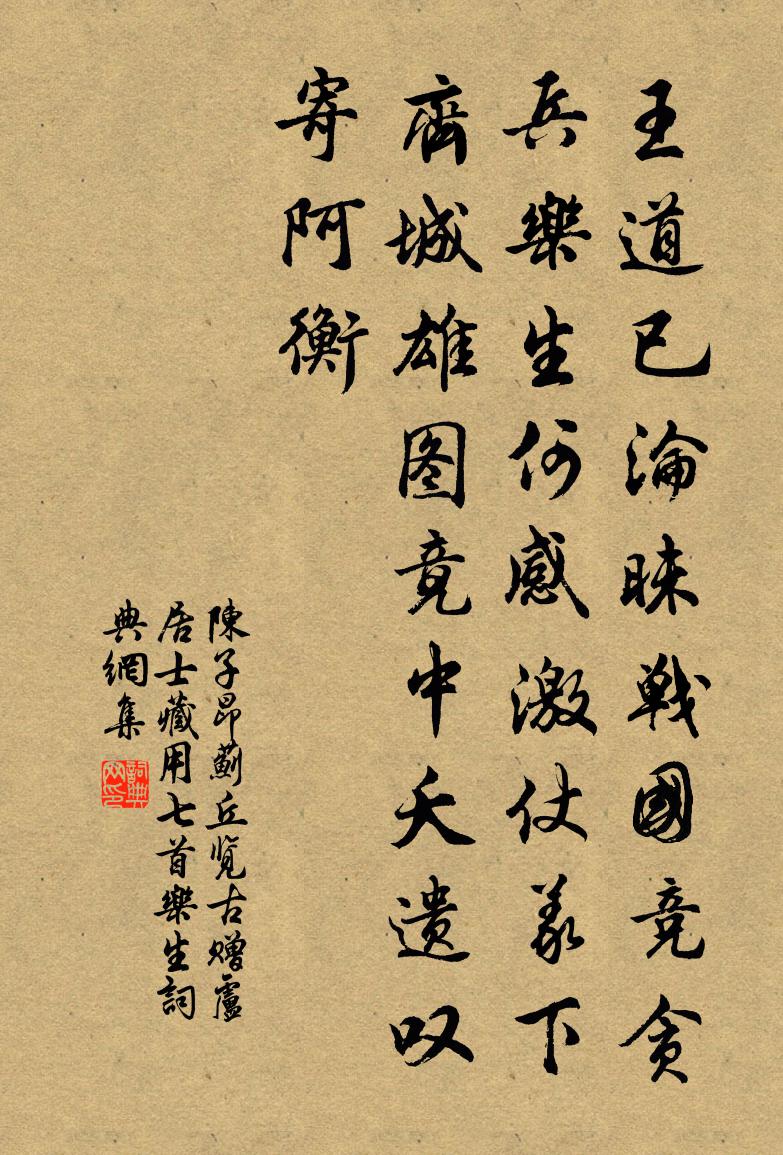 王道已淪昧戰國竞貪
兵樂生何感激仗義下
齊城雄图竟中夭遺叹
寄阿衡
陳子昂薊丘览古赠盧
居士藏用七首樂生詞
典網集
詞典网印